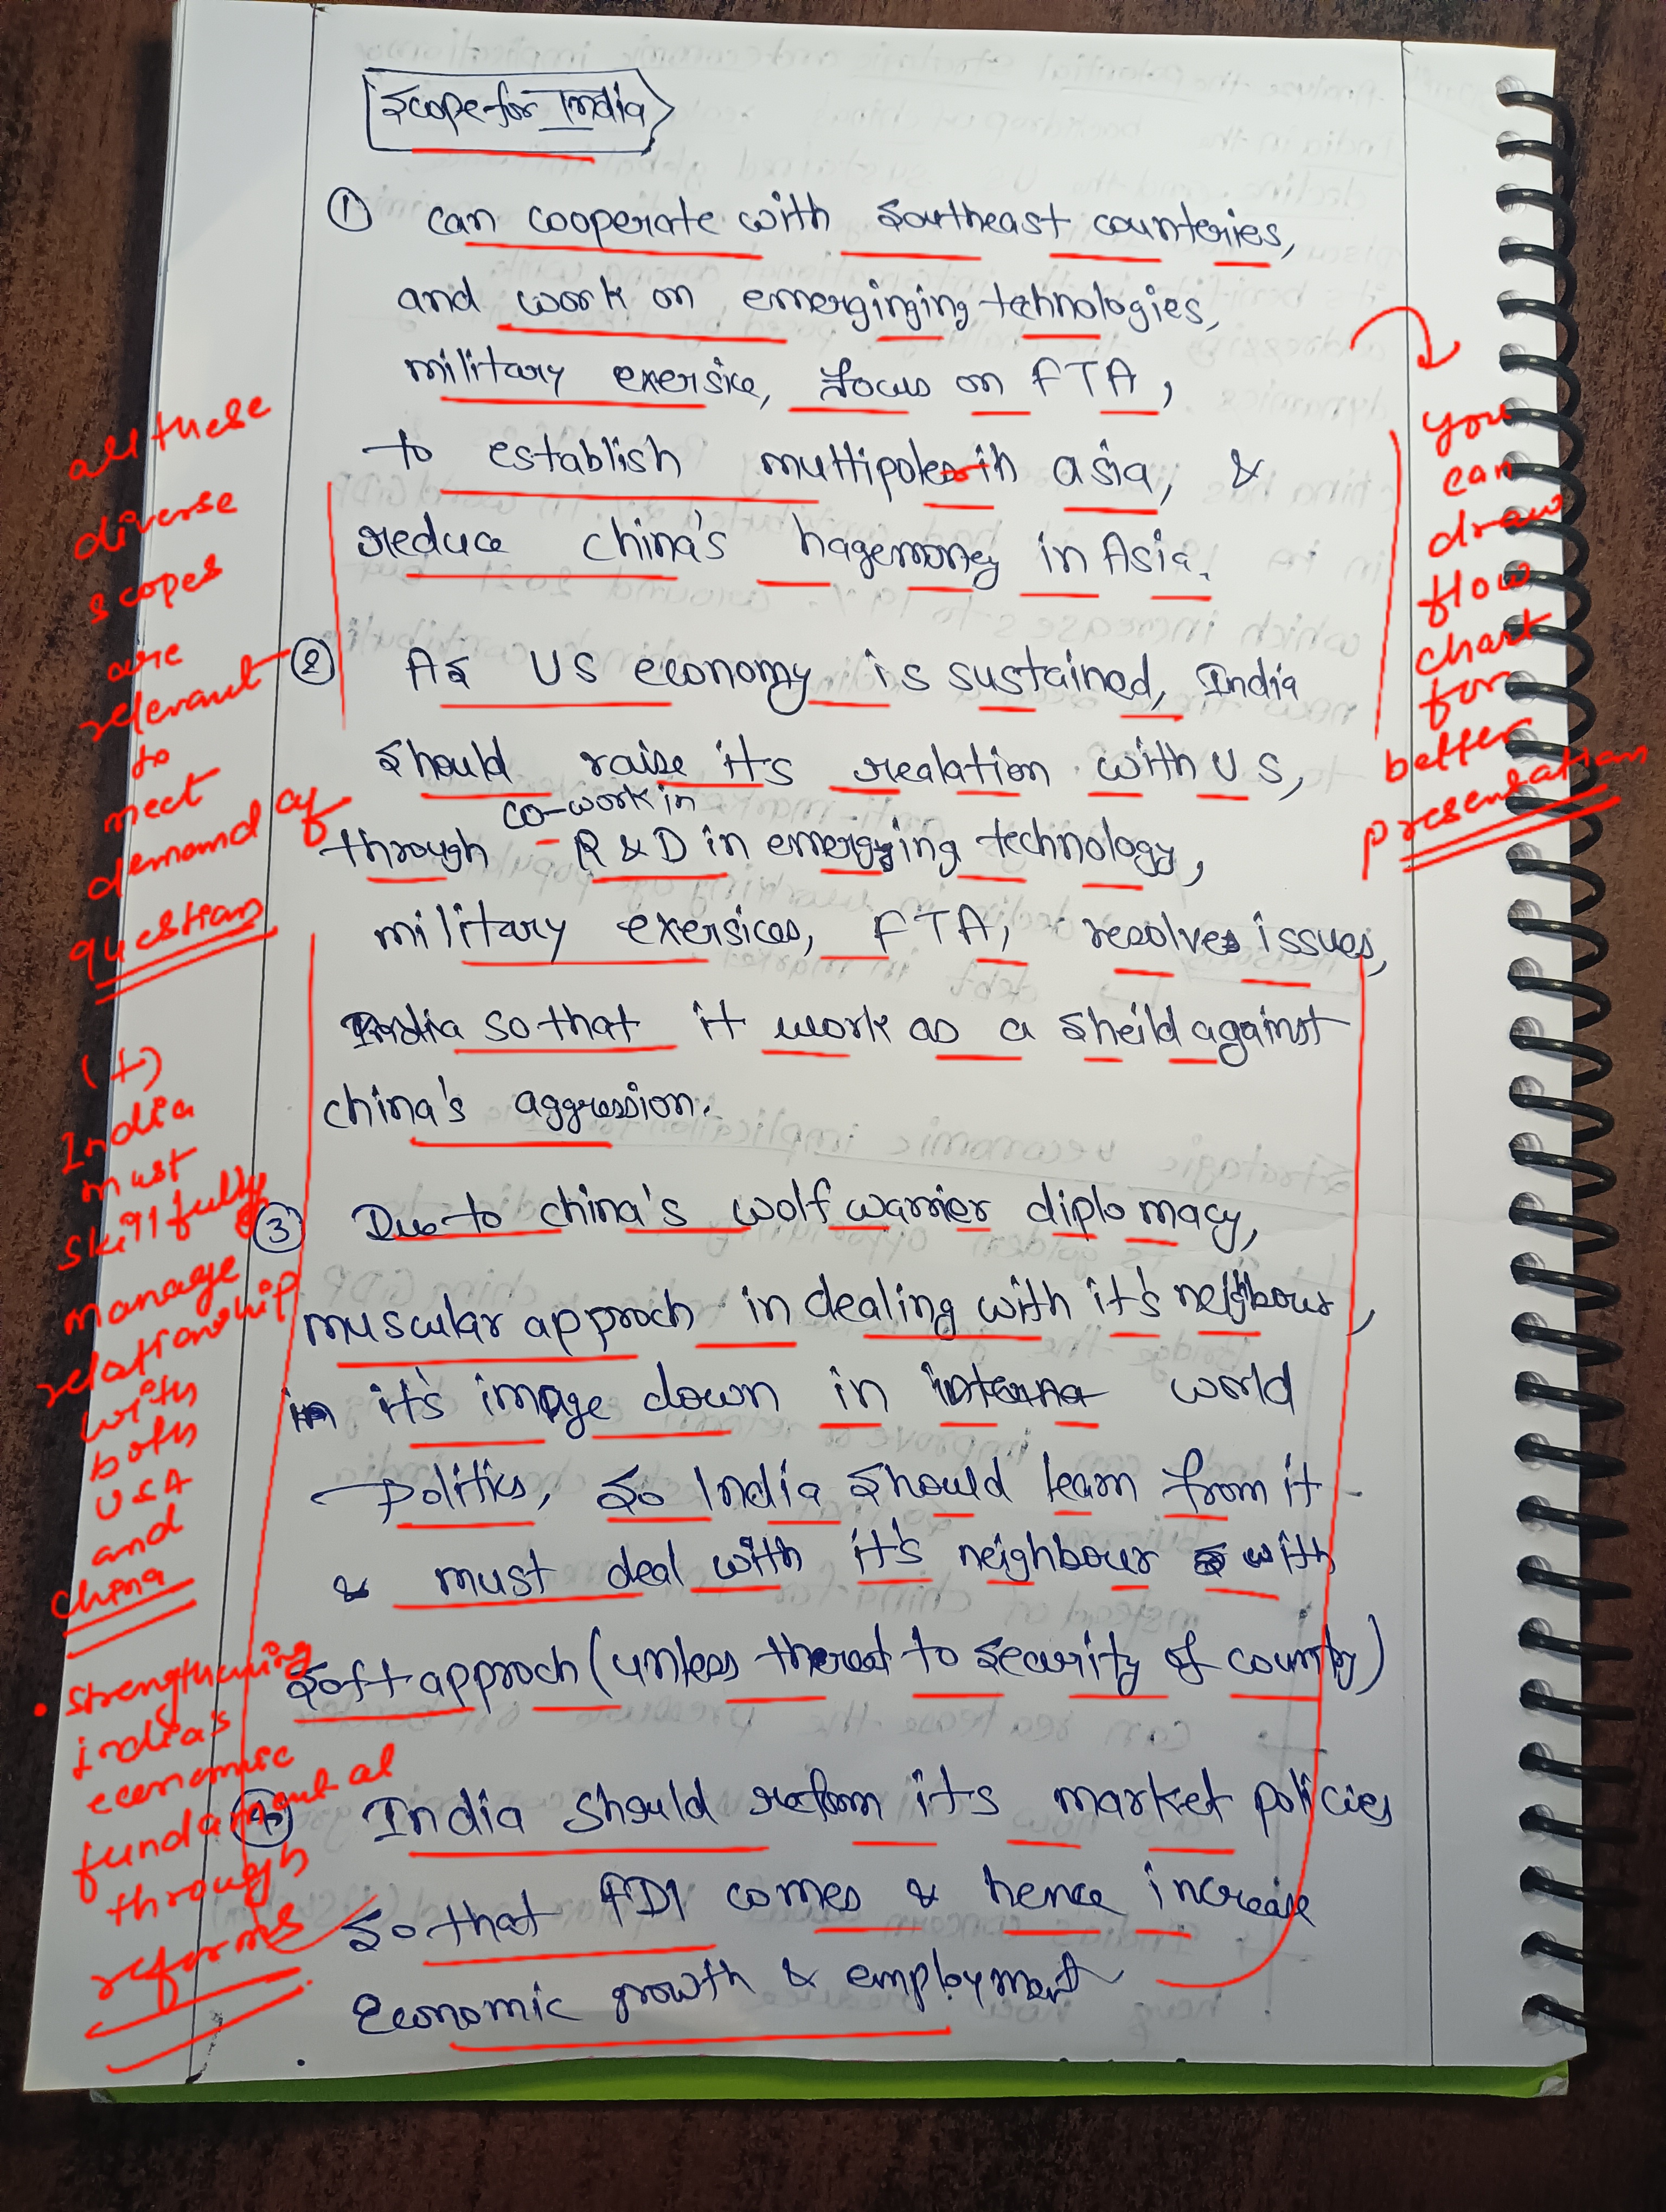 Scope for India
① can cooperate with Southeast counteries,
and work on emerginging technologies,
military exersice, focus on FTA,
to establish multipoles in asia, &
reduce china's hagemoney in Asia.
② As US economy is sustained, India
should raise its realation with US,
co-work in
through R&D in emerging technology,
military exersices, FTA, resolves issues,
India so that it work as a sheild against
china's aggression.
③ Due to china's wolf warrier diplomacy,
muscular approch in dealing with it's neighbour,
in it's image down in interna world
Politics, so India should learn from it
& must deal with it's neighbour with
soft approch (unless thereat to security of country)
④ India should reform its market policies
so that FDI comes & hence increase
Economic growth & employment
all these
diverse
scopes
are
relevant
to
meet
demand of
question
(+)
India
must
skillfully
manage
relationship
with
both
USA
and
china
• strengthening
india's
economic
fundamental
through
reforms
you
can
draw
flow
chart
for
better
presentation